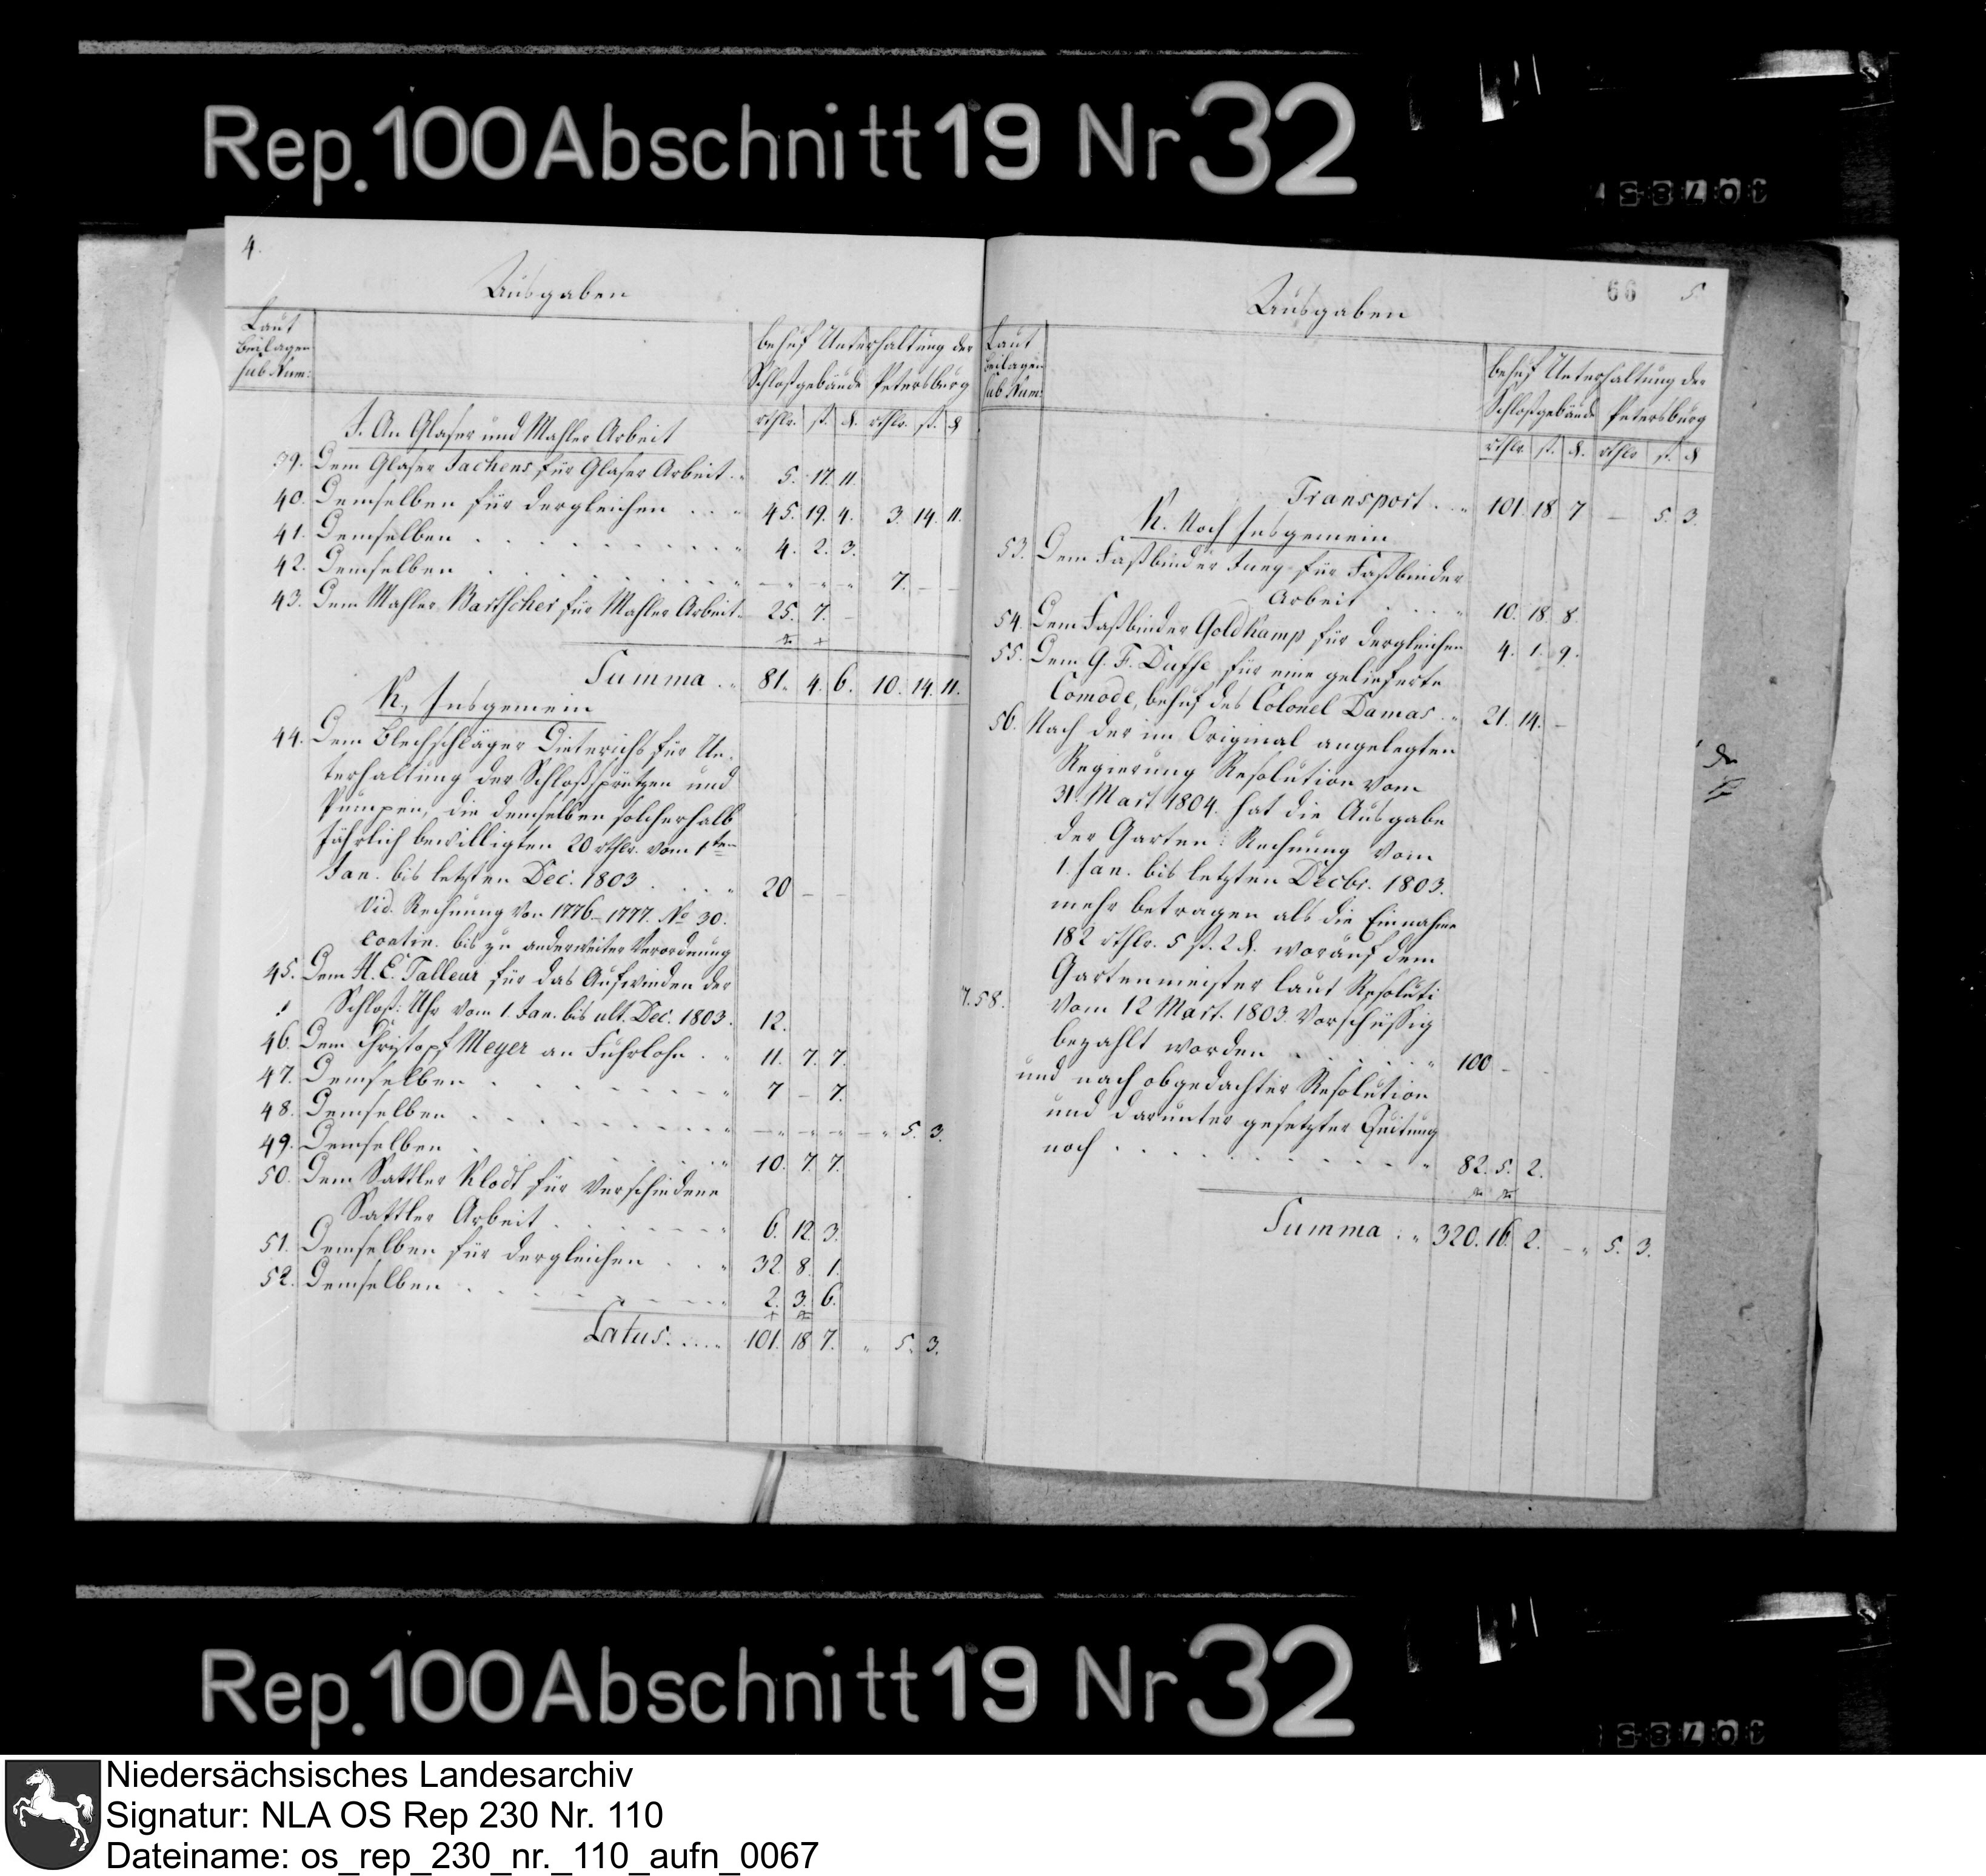 Rep. 100 Abschnitt 19 Nr 32
4.
Ausgaben
Laut
Beilagen
sub Num:
behuf Unterhaltung der
Schloßgebäude Petersburg
rthlr. ß. d. rthlr. ß. d
J. An Glaser und Mahler Arbeit
39. Dem Glaser Jachens für Glaser Arbeit . . 5. 17. 11.
40. Demselben für dergleichen . . . 45. 19. 4. 3. 14. 11.
41. Demselben . . . . . . . . 4. 2. 3.
42. Demselben . . . . . . . . — - - - 7. — —
43. Dem Mahler Bartscher für Mahler Arbeit . 25. 7. —
Summa . . 81. 4. 6. 10. 14. 11.
K, Insgemein
44. Dem Blechschläger Dieterichs für Un-
terhaltung der Schloßsprützen und
Pumpen, die demselben solcherhalb
jährlich bewilligten 20 rthlr. vom 1ten
Jan. bis letzten Dec. 1803 . . . . 20 — —
Vid. Rechnung von 1776-1777. No 30.
contin. bis zu anderweiter Verordnung
45. Dem H. C. Talleur für das Aufwinden der
Schloß: Uhr vom 1. Jan. bis ult. Dec. 1803. 12.
46. Dem Christoph Meyer an Fuhrlohn . . 11. 7. 7.
47. Demselben . . . . . . . 7 — 7.
48. Demselben . . . . . . . — - - - - 5. 3.
49. Demselben . . . . . . . 10. 7. 7.
50. Dem Sattler Klodt für verschiedene
Sattler Arbeit . . . . . . 6. 12. 3.
51. Demselben für dergleichen . . . 32. 8. 1.
52. Demselben . . . . . . . 2. 3. 6.
Latus. . . . . 101. 18. 7. " 5. 3.
66 5
Ausgaben
Laut
Beilagen
sub Num:
behuf Unterhaltung der
Schloßgebäude Petersburg
rthlr. ß. d. rthlr ß. d
Transport . . . 101. 18. 7 — 5. 3.
K. Noch Insgemein
53. Dem Faßbinder Jung für Faßbinder
Arbeit . . . . 10. 18. 8.
54. Dem Faßbinder Goldkamp für dergleichen 4. 1. 9.
55. Dem G. F. Duffe für eine gelieferte
Comode, behuf des Colonel Damas . . 21. 14. —
56. Nach der im Original angelegten
Regierung Resolution vom
31. Mart 1804. hat die Ausgabe
der Garten: Rechnung vom
1. Jan. bis letzten Decbr. 1803.
mehr betragen als die Einnahme
182 rthlr. 5 ß. 2 d. worauf dem
Gartenmeister laut Resoluti
7. 58. vom 12 Mart. 1803. vorschüssig
bezahlt worden . . . . . . 100 — -
und nach obgedachter Resolution
und darunter gesetzter Quitung
noch . . . . . . . . . 82. 5. 2.
Summa : . 320. 16. 2. — " 5. 3.
Rep. 100 Abschnitt 19 Nr 32
Niedersächsisches Landesarchiv
Signatur: NLA OS Rep 230 Nr. 110
Dateiname: os_rep_230_nr._110_aufn_0067